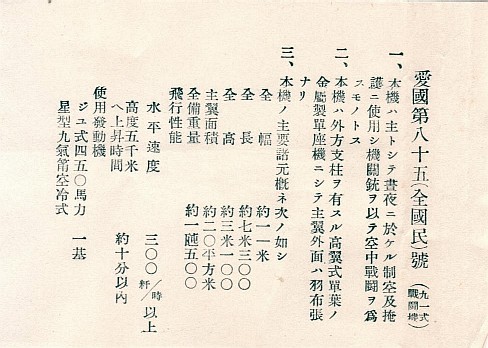 愛國第八十五(全國民)號 (九一式戰鬪機)
一、本機ハ主トシテ晝夜ニ於ケル制空及掩
護ニ使用シ機關銃ヲ以テ空中戰鬪ヲ爲
スモノトス
二、本機ハ外方支柱ヲ有スル高翼式單葉ノ
金屬製單座機ニシテ主翼外面ハ羽布張
ナリ
三、本機ノ主要諸元概ネ次ノ如シ
全幅 約一一米
全長 約七米三〇〇
全高 約三米一〇〇
主翼面積 約二〇平方米
全備重量 約一瓲五〇〇
飛行性能
水平速度 三〇〇粁/時以上
高度五千米
ヘ上昇時間 約十分以內
使用發動機
ジユ式四五〇馬力 一基
星型九氣筩空冷式